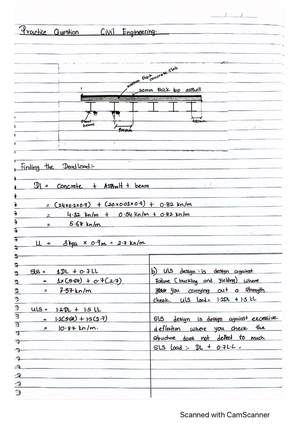 Practice Question Civil Engineering:
200mm thick concrete slab
30mm thick top asphalt
beam
Finding the Deadload:-
DL = Concrete + Asphalt + beam
= (24×0.2×0.9) + (20×0.03×0.9) + 0.82 kn/m
= 4.32 kn/m + 0.54 kn/m + 0.82 kn/m
= 5.68 kn/m
LL = 3kpa × 0.9m = 2.7 kn/m
SLS = 1DL + 0.7LL
= 1×(5.68) + 0.7(2.7)
= 7.57 kn/m
ULS = 1.2DL + 1.5LL
= 1.2(5.68) + 1.5(2.7)
= 10.87 kn/m
b) ULS design is design against
failure (buckling and yielding) where
you carrying out a strength
check. ULS load = 1.2DL + 1.5LL
SLS design is design against excessive
deflection where you check the
structure does not deflect to much
SLS load :- DL + 0.7LL.
Scanned with CamScanner